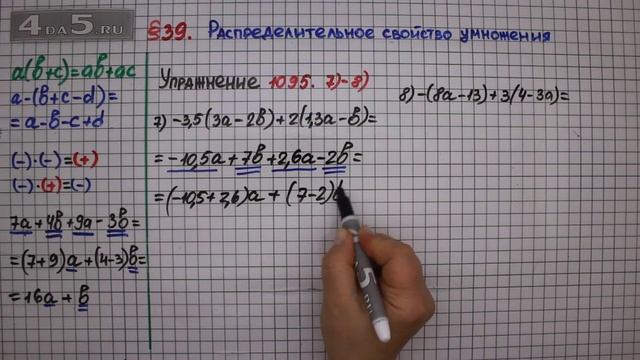 4DA5.RU
§39. Распределительное свойство умножения
a(b+c)=ab+ac
a-(b+c-d)=
=a-b-c+d
(-)·(-)=(+)
(-)·(+)=(-)
7a+4b+9a-3b=
=(7+9)a+(4-3)b=
=16a+b
Упражнение 1095. 7)-8)
7) -3,5(3a-2b)+2(1,3a-b)=
=-10,5a+7b+2,6a-2b=
=(-10,5+2,6)a+(7-2)b
8) -(8a-13)+3(4-3a)=